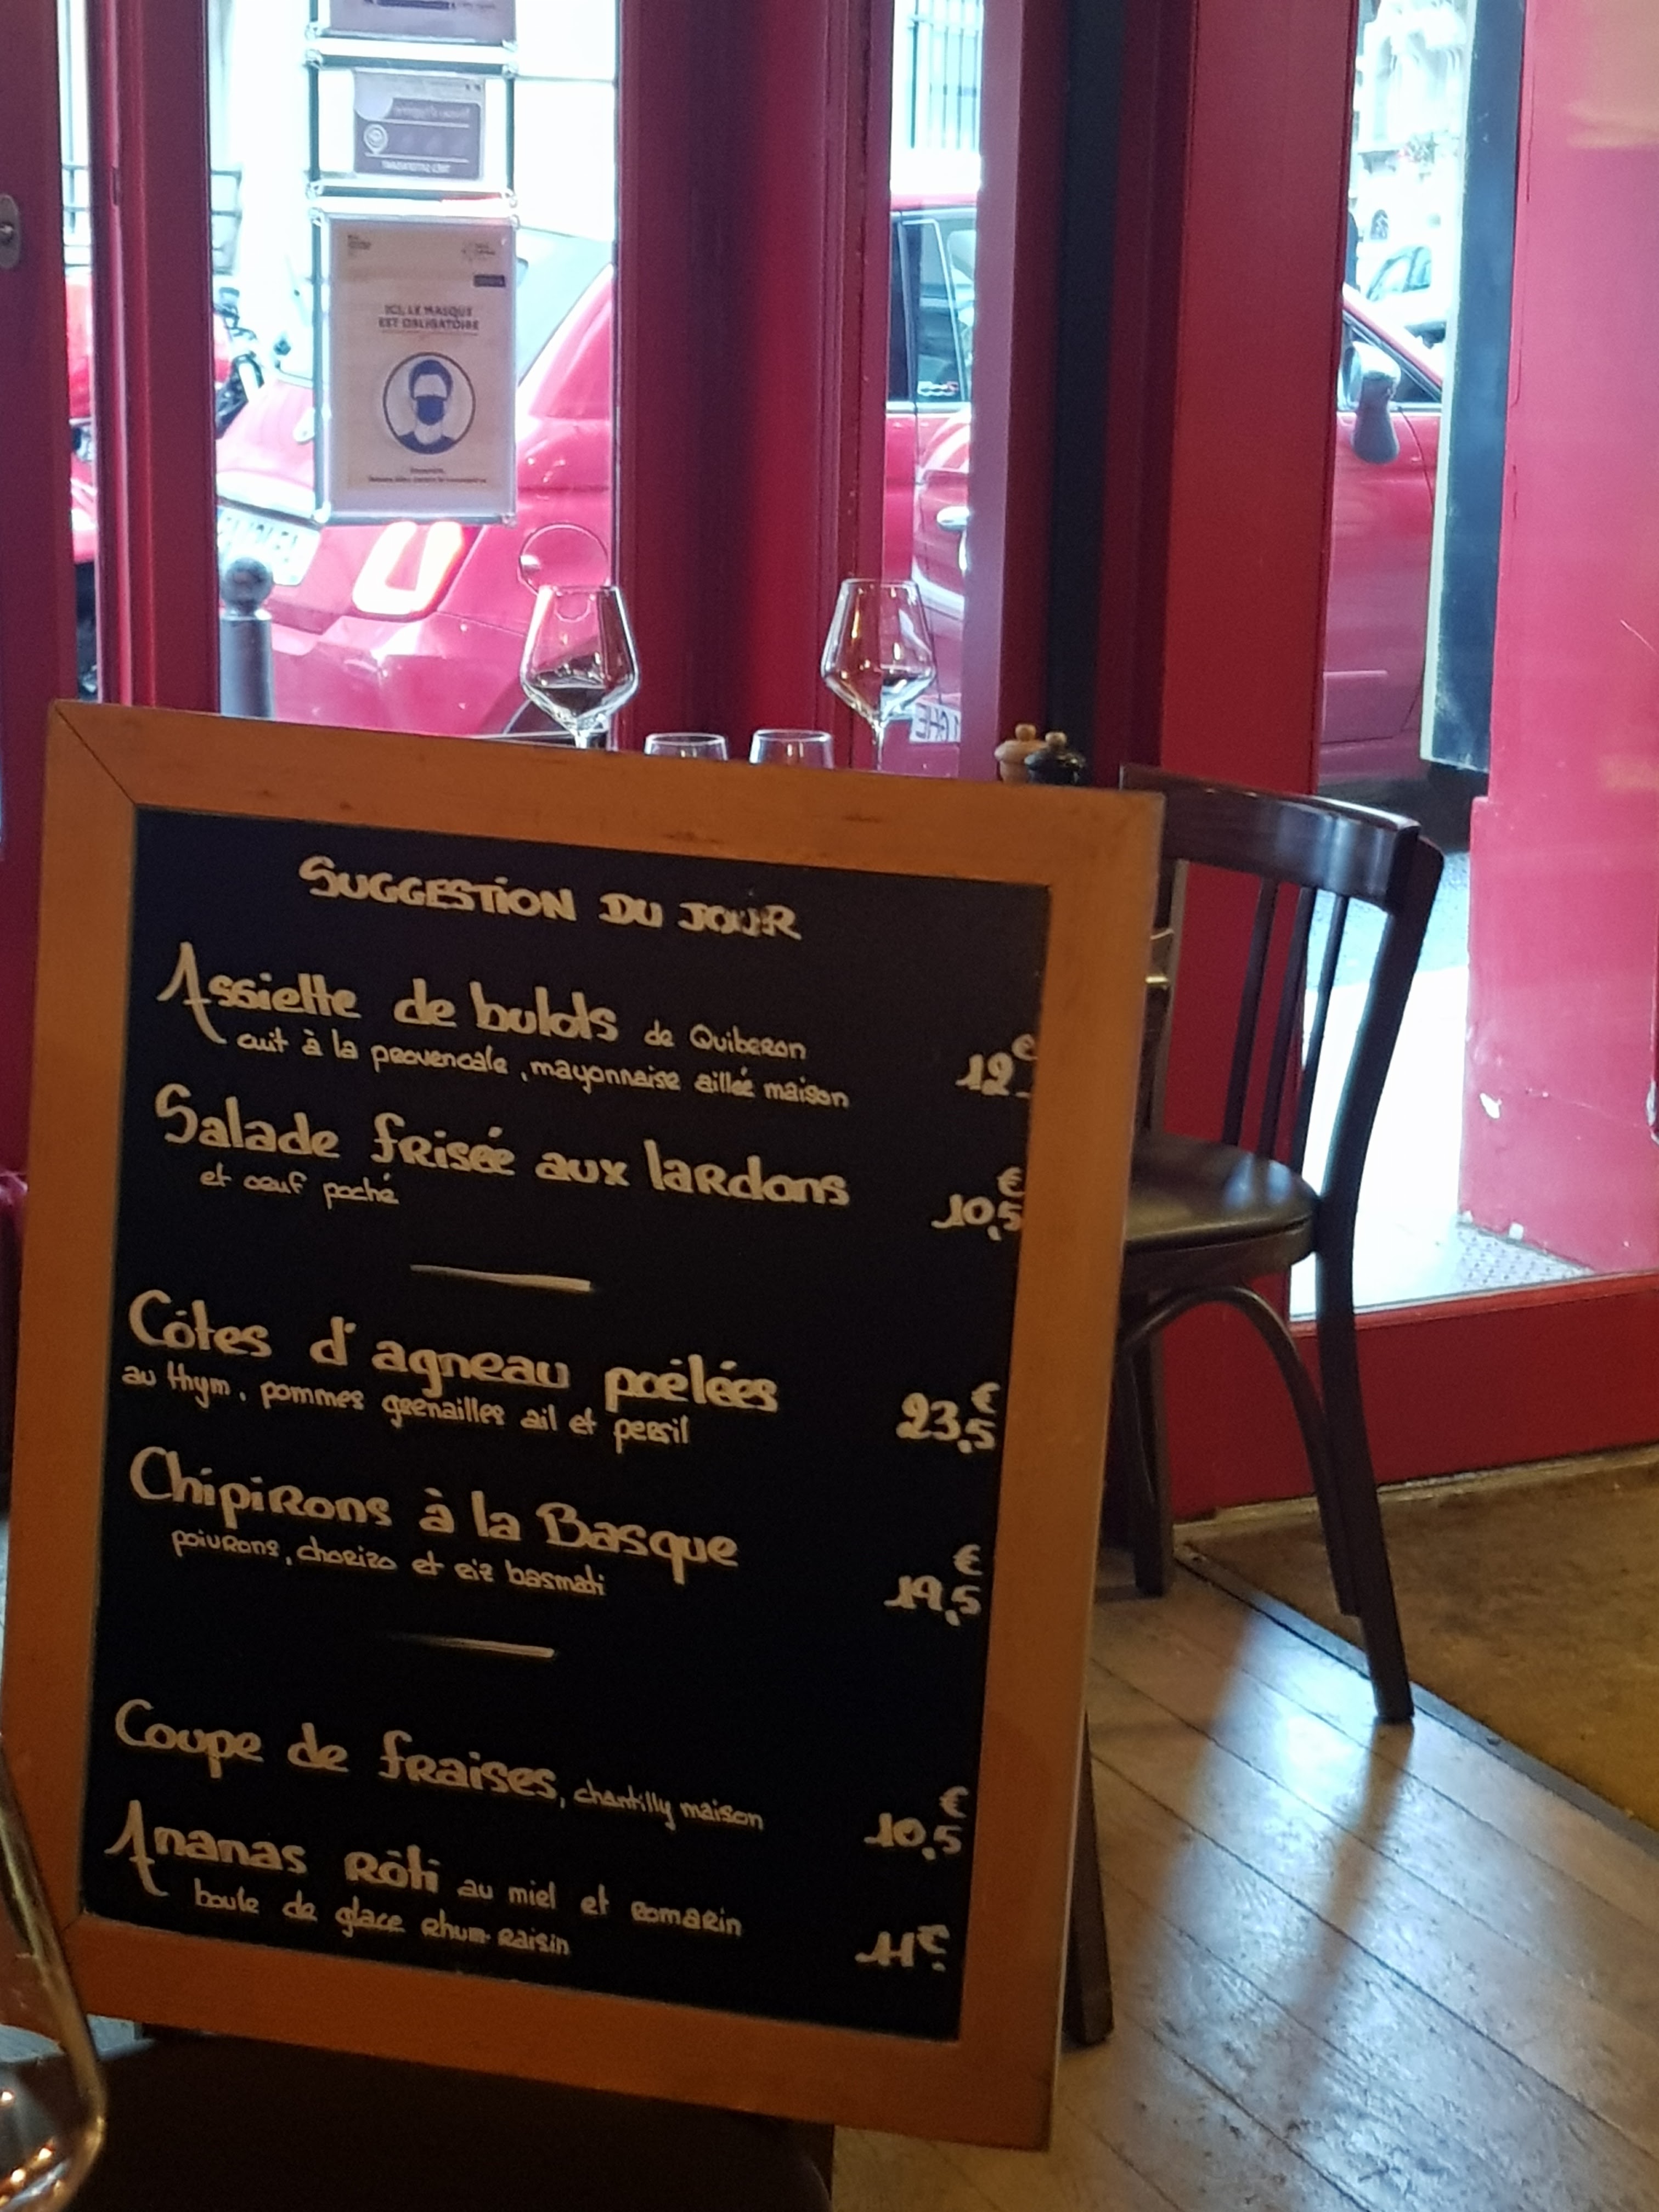 ICI, LE MASQUE
EST OBLIGATOIRE
SUGGESTION DU JOUR
Assiette de bulots de Quiberon
cuit à la provencale, mayonnaise aillée maison
12€
Salade frisée aux lardons
et oeuf poché
10,5€
Côtes d'agneau poëlées
au thym, pommes grenailles ail et persil
23,5€
Chipirons à la Basque
poivrons, chorizo et riz basmati
19,5€
Coupe de fraises, chantilly maison
10,5€
Ananas Rôti au miel et romarin
boule de glace Rhum-Raisin
11€